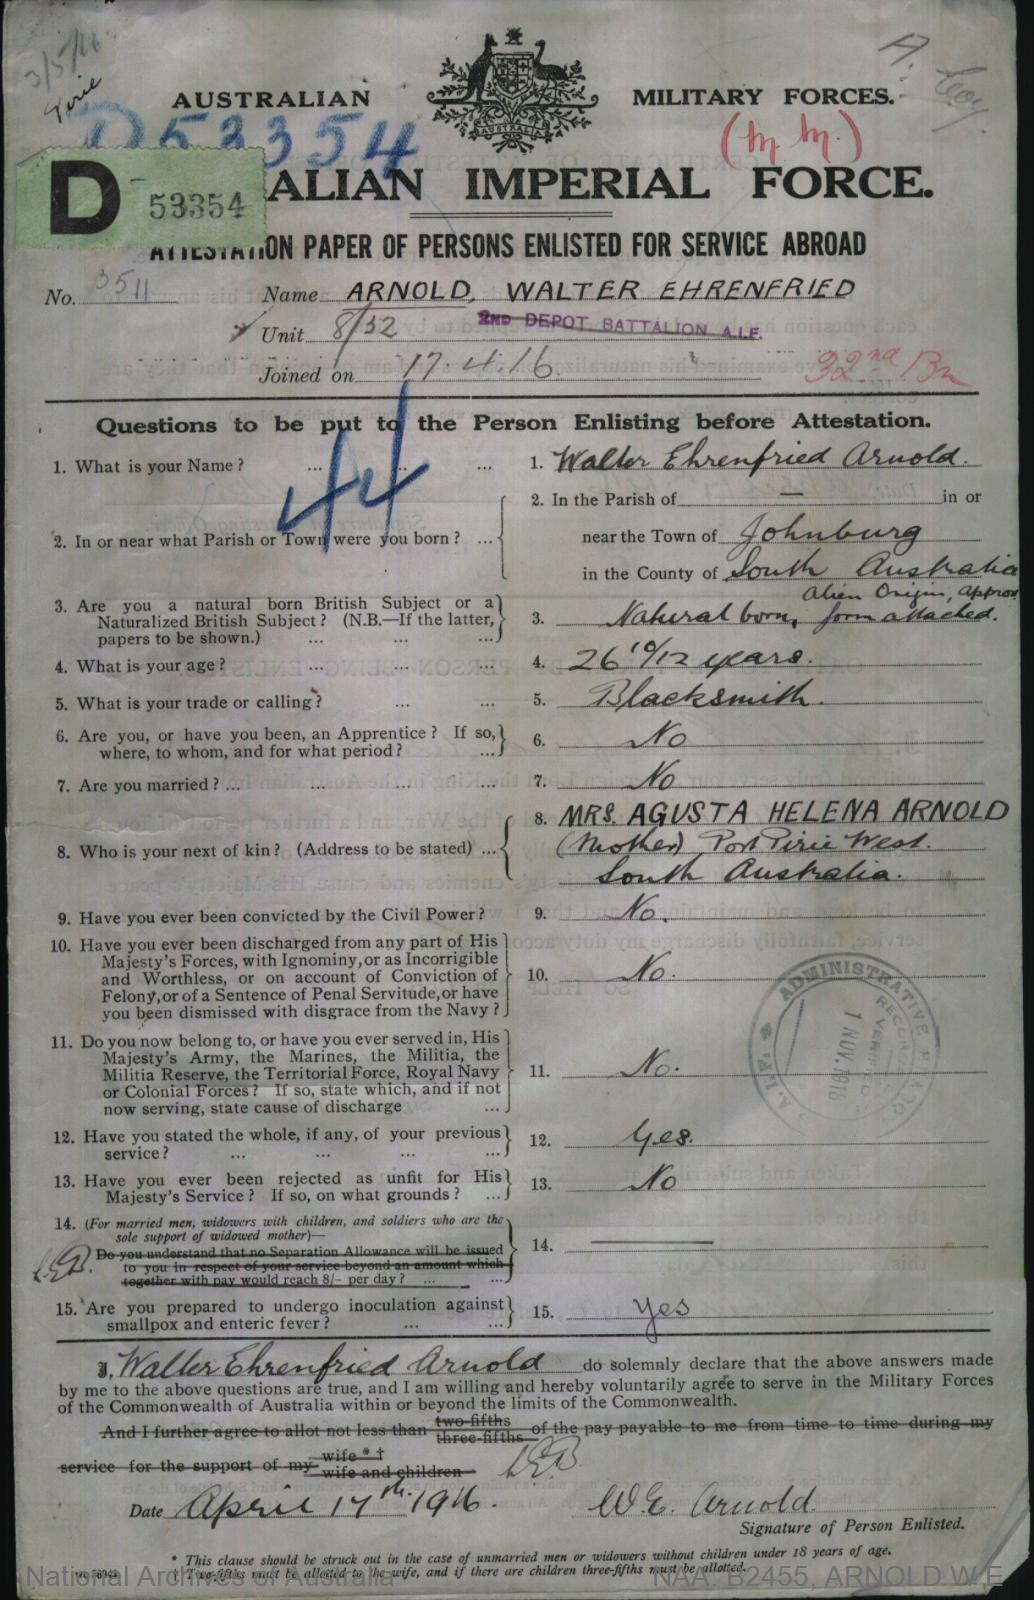 3/5/16
Pirie
AUSTRALIAN MILITARY FORCES.
AUSTRALIA
D 53354
(M.M.)
D 53354
ALIAN IMPERIAL FORCE.
ATTESTATION PAPER OF PERSONS ENLISTED FOR SERVICE ABROAD
No. 3511 Name ARNOLD, WALTER EHRENFRIED
Unit 8/32 2ND DEPOT BATTALION A.I.F.
Joined on 17.4.16. 32nd Bn
Questions to be put to the Person Enlisting before Attestation.
44
1. What is your Name? ... ... ... 1. Walter Ehrenfried Arnold.
2. In or near what Parish or Town were you born? ... 2. In the Parish of — in or
near the Town of Johnburg
in the County of South Australia
3. Are you a natural born British Subject or a Naturalized British Subject? (N.B.—If the latter, papers to be shown.) ... ... ... 3. Natural born, Alien Origin, Approv form attached.
4. What is your age? ... ... ... 4. 26 10/12 years.
5. What is your trade or calling? ... ... 5. Blacksmith.
6. Are you, or have you been, an Apprentice? If so, where, to whom, and for what period? ... 6. No
7. Are you married? ... ... ... ... 7. No
8. Who is your next of kin? (Address to be stated) ... 8. MRS. AGUSTA HELENA ARNOLD
(Mother) Port Pirie West.
South Australia.
9. Have you ever been convicted by the Civil Power? 9. No.
10. Have you ever been discharged from any part of His
Majesty's Forces, with Ignominy, or as Incorrigible
and Worthless, or on account of Conviction of
Felony, or of a Sentence of Penal Servitude, or have
you been dismissed with disgrace from the Navy? 10. No.
11. Do you now belong to, or have you ever served in, His
Majesty's Army, the Marines, the Militia, the
Militia Reserve, the Territorial Force, Royal Navy
or Colonial Forces? If so, state which, and if not
now serving, state cause of discharge ... 11. No.
A.I.F. ADMINISTRATIVE HEADQ
RECORDS
VERIFIED
1 NOV. 1918
12. Have you stated the whole, if any, of your previous
service? ... ... ... ... 12. Yes.
13. Have you ever been rejected as unfit for His
Majesty's Service? If so, on what grounds? ... 13. No
14. (For married men, widowers with children, and soldiers who are the
sole support of widowed mother)—
Do you understand that no Separation Allowance will be issued
to you in respect of your service beyond an amount which
together with pay would reach 8/- per day? ... ... 14. ———
15. Are you prepared to undergo inoculation against
smallpox and enteric fever? ... ... 15. Yes
I, Walter Ehrenfried Arnold do solemnly declare that the above answers made
by me to the above questions are true, and I am willing and hereby voluntarily agree to serve in the Military Forces
of the Commonwealth of Australia within or beyond the limits of the Commonwealth.
And I further agree to allot not less than two-fifths three-fifths of the pay payable to me from time to time during my
service for the support of my wife * † wife and children
Date April 17th. 1916. W.E. Arnold.
Signature of Person Enlisted.
* This clause should be struck out in the case of unmarried men or widowers without children under 18 years of age.
† Two-fifths must be allotted to the wife, and if there are children three-fifths must be allotted.
National Archives of Australia NAA: B2455, ARNOLD W E